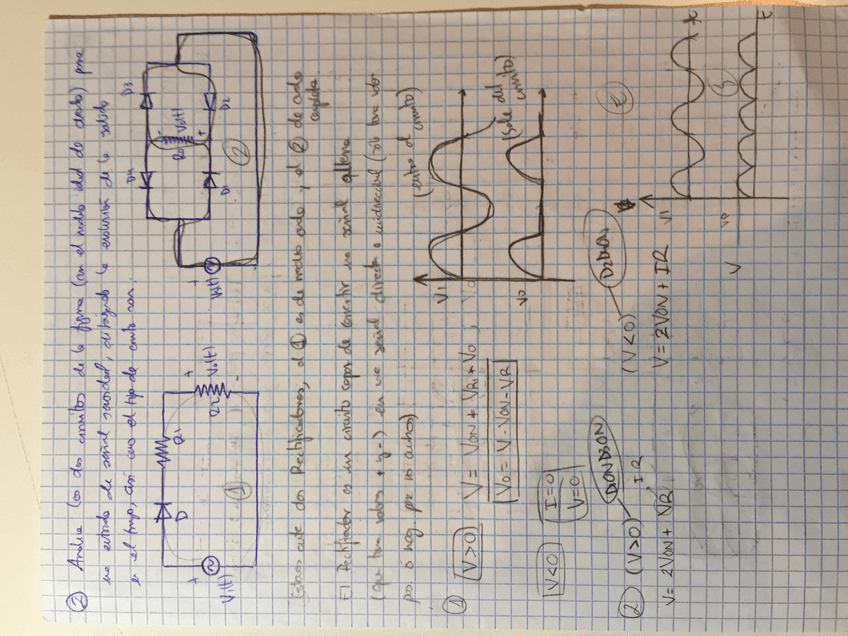 ② Analice los dos circuitos de la figura (con el modelo del diodo) para
una entrada de señal senoidal, dibujando la evolución de la salida
en el tiempo, así como el tipo de circuito son.
+
Vi(t)
D
R1
+
R2
Vo(t)
-
①
+
Vi(t)
D4
D3
D1
D2
-
Ro
Vo(t)
+
②
Estamos ante dos Rectificadores, el ① es de medio ciclo y el ② de ciclo
completo
El Rectificador es un circuito capaz de convertir una señal alterna
(que toma valores + y -) en una señal directa o unidireccional (sólo toma valor
pos. ó neg. pero no ambos)
① V>0 V = VON + VR1 + VO
VO = V - VON - VR
V<0 I=0
V=0
Vi
(entra al circuito)
VO
(sale del circuito)
② (V>0) D1ON D3ON
V = 2VON + VR
IR
(V<0) D2D4ON
V = 2VON + IR
E
Vi
t
VO
S
t
V